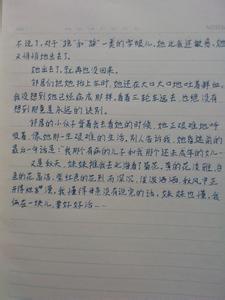 不说了。对于“跑”和“踩”一类的字眼儿，她比我还敏感。她
又悄悄地出去了。
她出去了，就再也没回来。
邻居们把她抬上车时，她还在大口大口地吐着鲜血。
我没想到她已经病成那样。看着三轮车远去，也绝没有
想到那竟是永远的诀别。
邻居的小伙子背着我去看她的时候，她正艰难地呼
吸着，像她那一生艰难的生活。别人告诉我，她昏迷前的
最后一句话是：“我那个有病的儿子和我那个还未成年的女儿……
又是秋天，妹妹推我去北海看了菊花。黄的花淡雅，白
色的花高洁，紫红色的花热烈而深沉，泼泼洒洒，秋风中正
开得烂漫。我懂得母亲没有说完的话，妹妹也懂，我
俩在一块儿，要好好活……